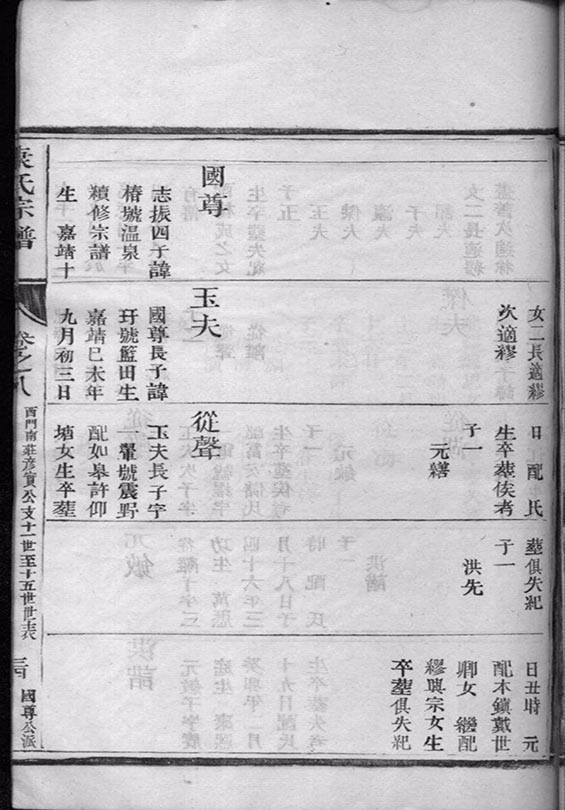 女二長適繆
次適繆
日 配 氏
生卒葬俟考
子一
元轄
葬俱失紀
子一
洪先
日丑時 元
配本鎮戴世
卿女 繼配
繆興宗女生
卒葬俱失紀
國尊
志振四子諱
椿號温泉
續修宗譜
生 嘉靖十
玉夫
國尊長子諱
玗號藍田生
嘉靖己未年
九月初三日
從聲
玉夫長子字
一鞏號震野
配如皋許仰
塘女生卒葬
氏宗譜
卷之八
西門南莊彦賓公支十一世至十五世世表
國尊公派